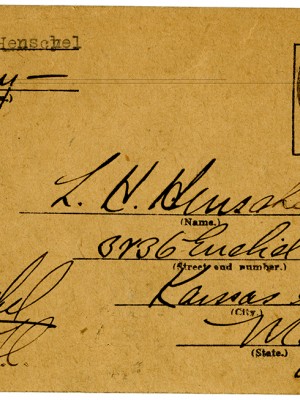 Henschel
L. H. Hensche
(Name.)
3236 Euclid
(Street and number.)
Kansas
(City.)
M
(State.)